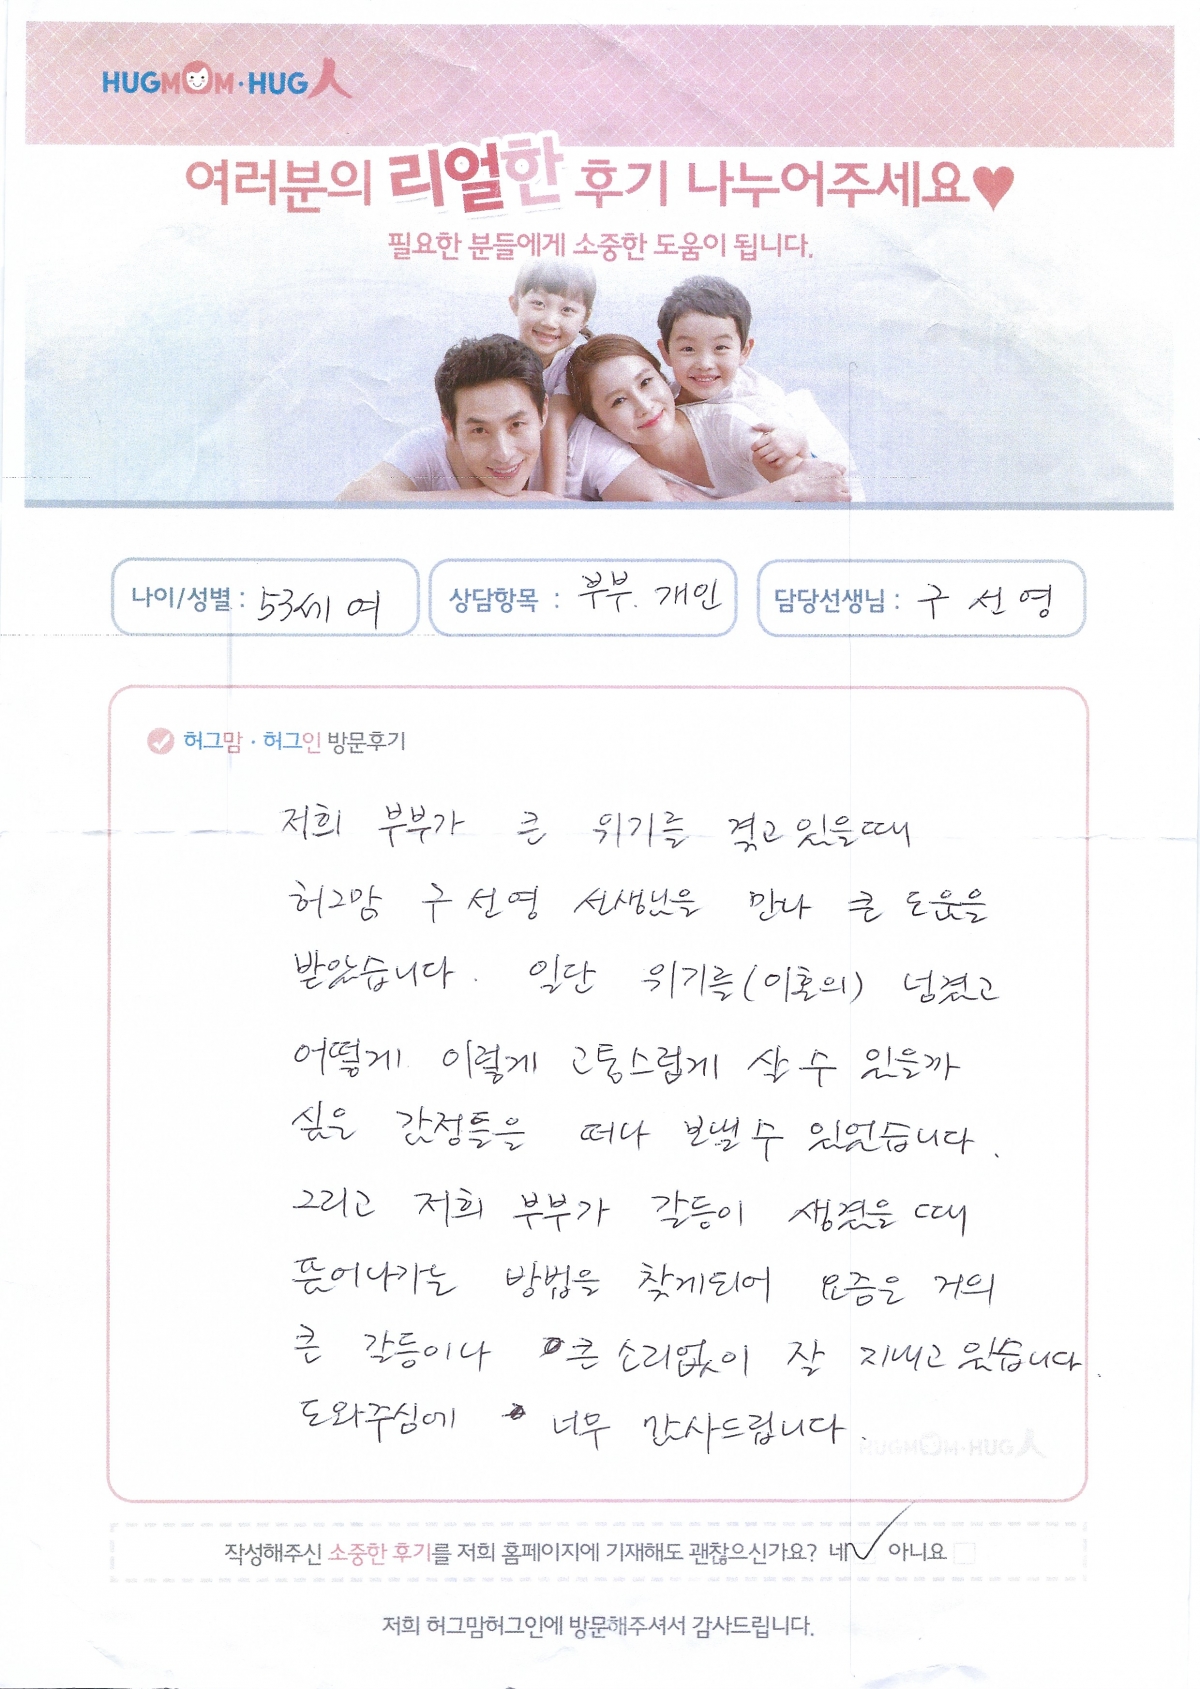 HUGMOM·HUG人
여러분의 리얼한 후기 나누어주세요♥
필요한 분들에게 소중한 도움이 됩니다.
나이/성별 : 53세 여
상담항목 : 부부. 개인
담당선생님 : 구 선 영
허그맘 · 허그인 방문후기
저희 부부가 큰 위기를 겪고 있을때
허그맘 구선영 선생님을 만나 큰 도움을
받았습니다. 일단 위기를(이혼의) 넘겼고
어떻게 이렇게 고통스럽게 살 수 있을까
싶은 감정들을 떠나 보낼 수 있었습니다.
그리고 저희 부부가 갈등이 생겼을 때
뜯어나가는 방법을 찾게되어 요즘은 거의
큰 갈등이나 큰 소리없이 잘 지내고 있습니다.
도와주심에 너무 감사드립니다.
HUGMOM·HUG人
작성해주신 소중한 후기를 저희 홈페이지에 기재해도 괜찮으신가요? 네 ✓ 아니요 □
저희 허그맘허그인에 방문해주셔서 감사드립니다.